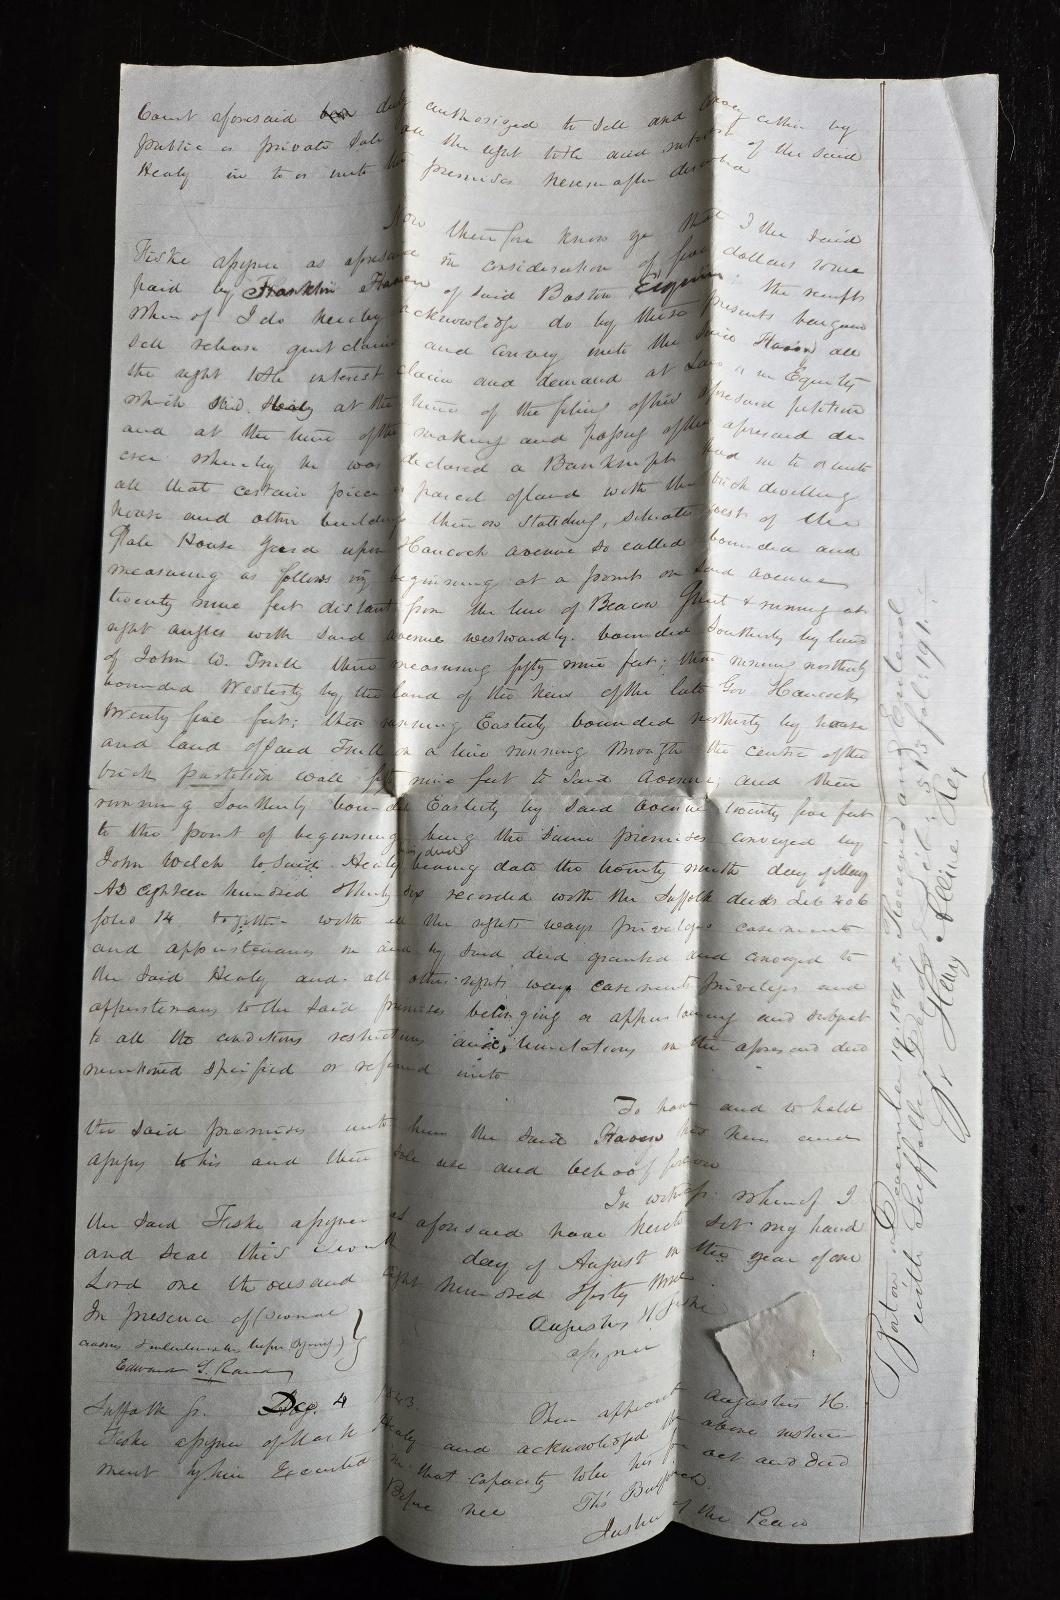 Court aforesaid been duly authorized to sell and convey either by
public or private Sale all the right title and interest of the said
Healy in to or unto the premises hereinafter described
Now therefore know ye that I the said
Fiske assignee as aforesaid in consideration of five dollars to me
paid by Franklin Haven of said Boston Esquire the receipt
whereof I do hereby acknowledge do by these presents bargain
sell release quit claim and convey unto the said Haven all
the right title interest claim and demand at Law or in Equity
which said Healy at the time of the filing of his aforesaid petition
and at the time of the making and passing of the aforesaid de-
cree whereby he was declared a Bankrupt had in to or unto
all that certain piece or parcel of land with the brick dwelling
house and other buildings thereon standing, situate west of the
State House Yard upon Hancock avenue so called bounded and
measuring as follows viz beginning at a point on said avenue
twenty nine feet distant from the line of Beacon Street & running at
right angles with said avenue westwardly bounded Southerly by land
of John W. Trull there measuring fifty nine feet; then running northerly
bounded Westerly by the land of the heirs of the late Gov Hancock
twenty five feet; then running Easterly bounded northerly by house
and land of said Trull on a line running through the centre of the
brick partition wall fifty nine feet to said avenue; and then
running Southerly bounded Easterly by said avenue twenty five feet
to the point of beginning being the same premises conveyed by
John Welch to said Healy by deed bearing date the twenty ninth day of May
AD eighteen hundred & thirty six recorded with the Suffolk deeds Lib 406
folio 14 together with all the rights ways privileges easements
and appurtenances in and by said deed granted and conveyed to
the said Healy and all other rights ways easements privileges and
appurtenances to the said premises belonging or appurtaining and subject
to all the conditions restrictions and limitations in the aforesaid deed
mentioned specified or referred unto
To have and to hold
the said premises unto him the said Haven his heirs and
assigns to his and their sole use and behoof forever
In witness whereof I
the said Fiske assignee as aforesaid have hereto set my hand
and seal this day of August in the year of our
Lord one thousand eight hundred & forty three
In presence of (several Augustus H. Fiske
erasures & interlineations before signing) assignee
Edward G. Rand
Suffolk ss. Dec. 4 1843. Then appeared Augustus H.
Fiske assignee of Mark Healy and acknowledged the above instru
ment by him Executed in that capacity to be his free act and deed
Before me Ths Bumstead.
Justice of the Peace
Boston December 19, 1843. Received and Entered
with Suffolk Deeds Lib: 513 fol: 191.
Pr Henry Alline Reg